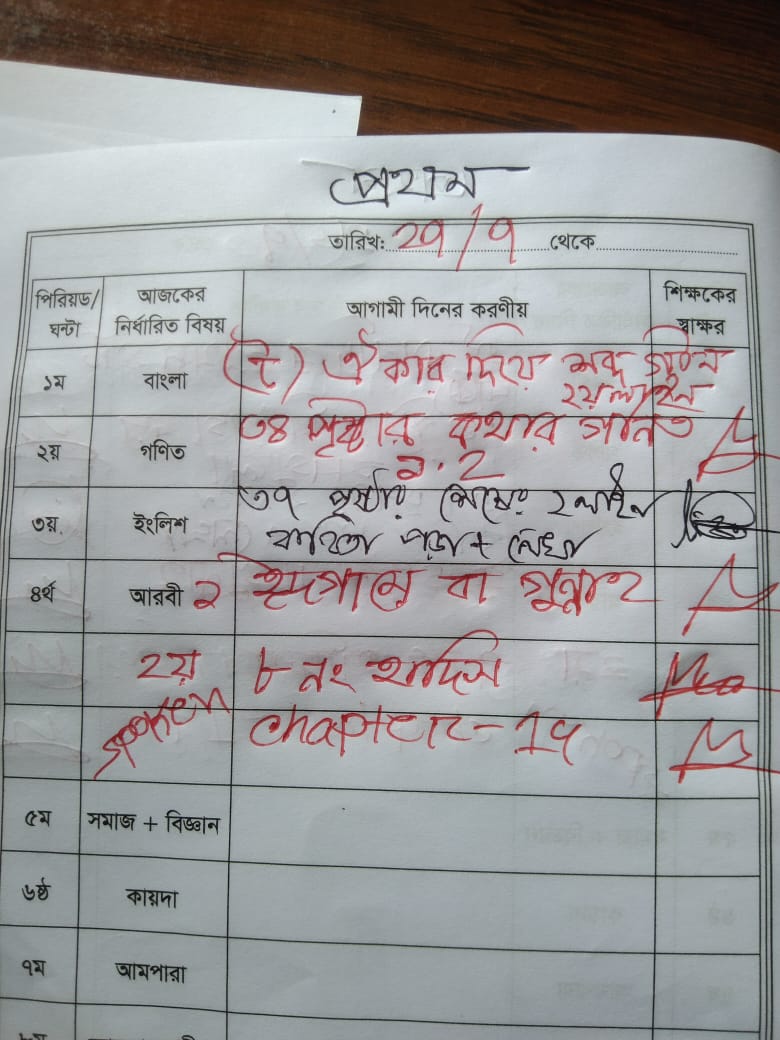 প্রথম
তারিখ: ২৭/৭ থেকে
পিরিয়ড/ঘন্টা আজকের নির্ধারিত বিষয় আগামী দিনের করণীয় শিক্ষকের স্বাক্ষর
১ম বাংলা (ৈ) ঐ কার দিয়ে শব্দ গঠন
২য় লাইন
২য় গণিত ৩৪ পৃষ্টার কথার গনিত
১.২
৩য়. ইংলিশ ৩৭ পৃষ্টার শেষের ২ লাইন
কবিতা পড়া + লেখা
৪র্থ আরবী ১ ইদগামে বা গুন্নাহ
২য় ৮ নং হাদিস
spoken chapter-
৫ম সমাজ + বিজ্ঞান
৬ষ্ঠ কায়দা
৭ম আমপারা
৮ম